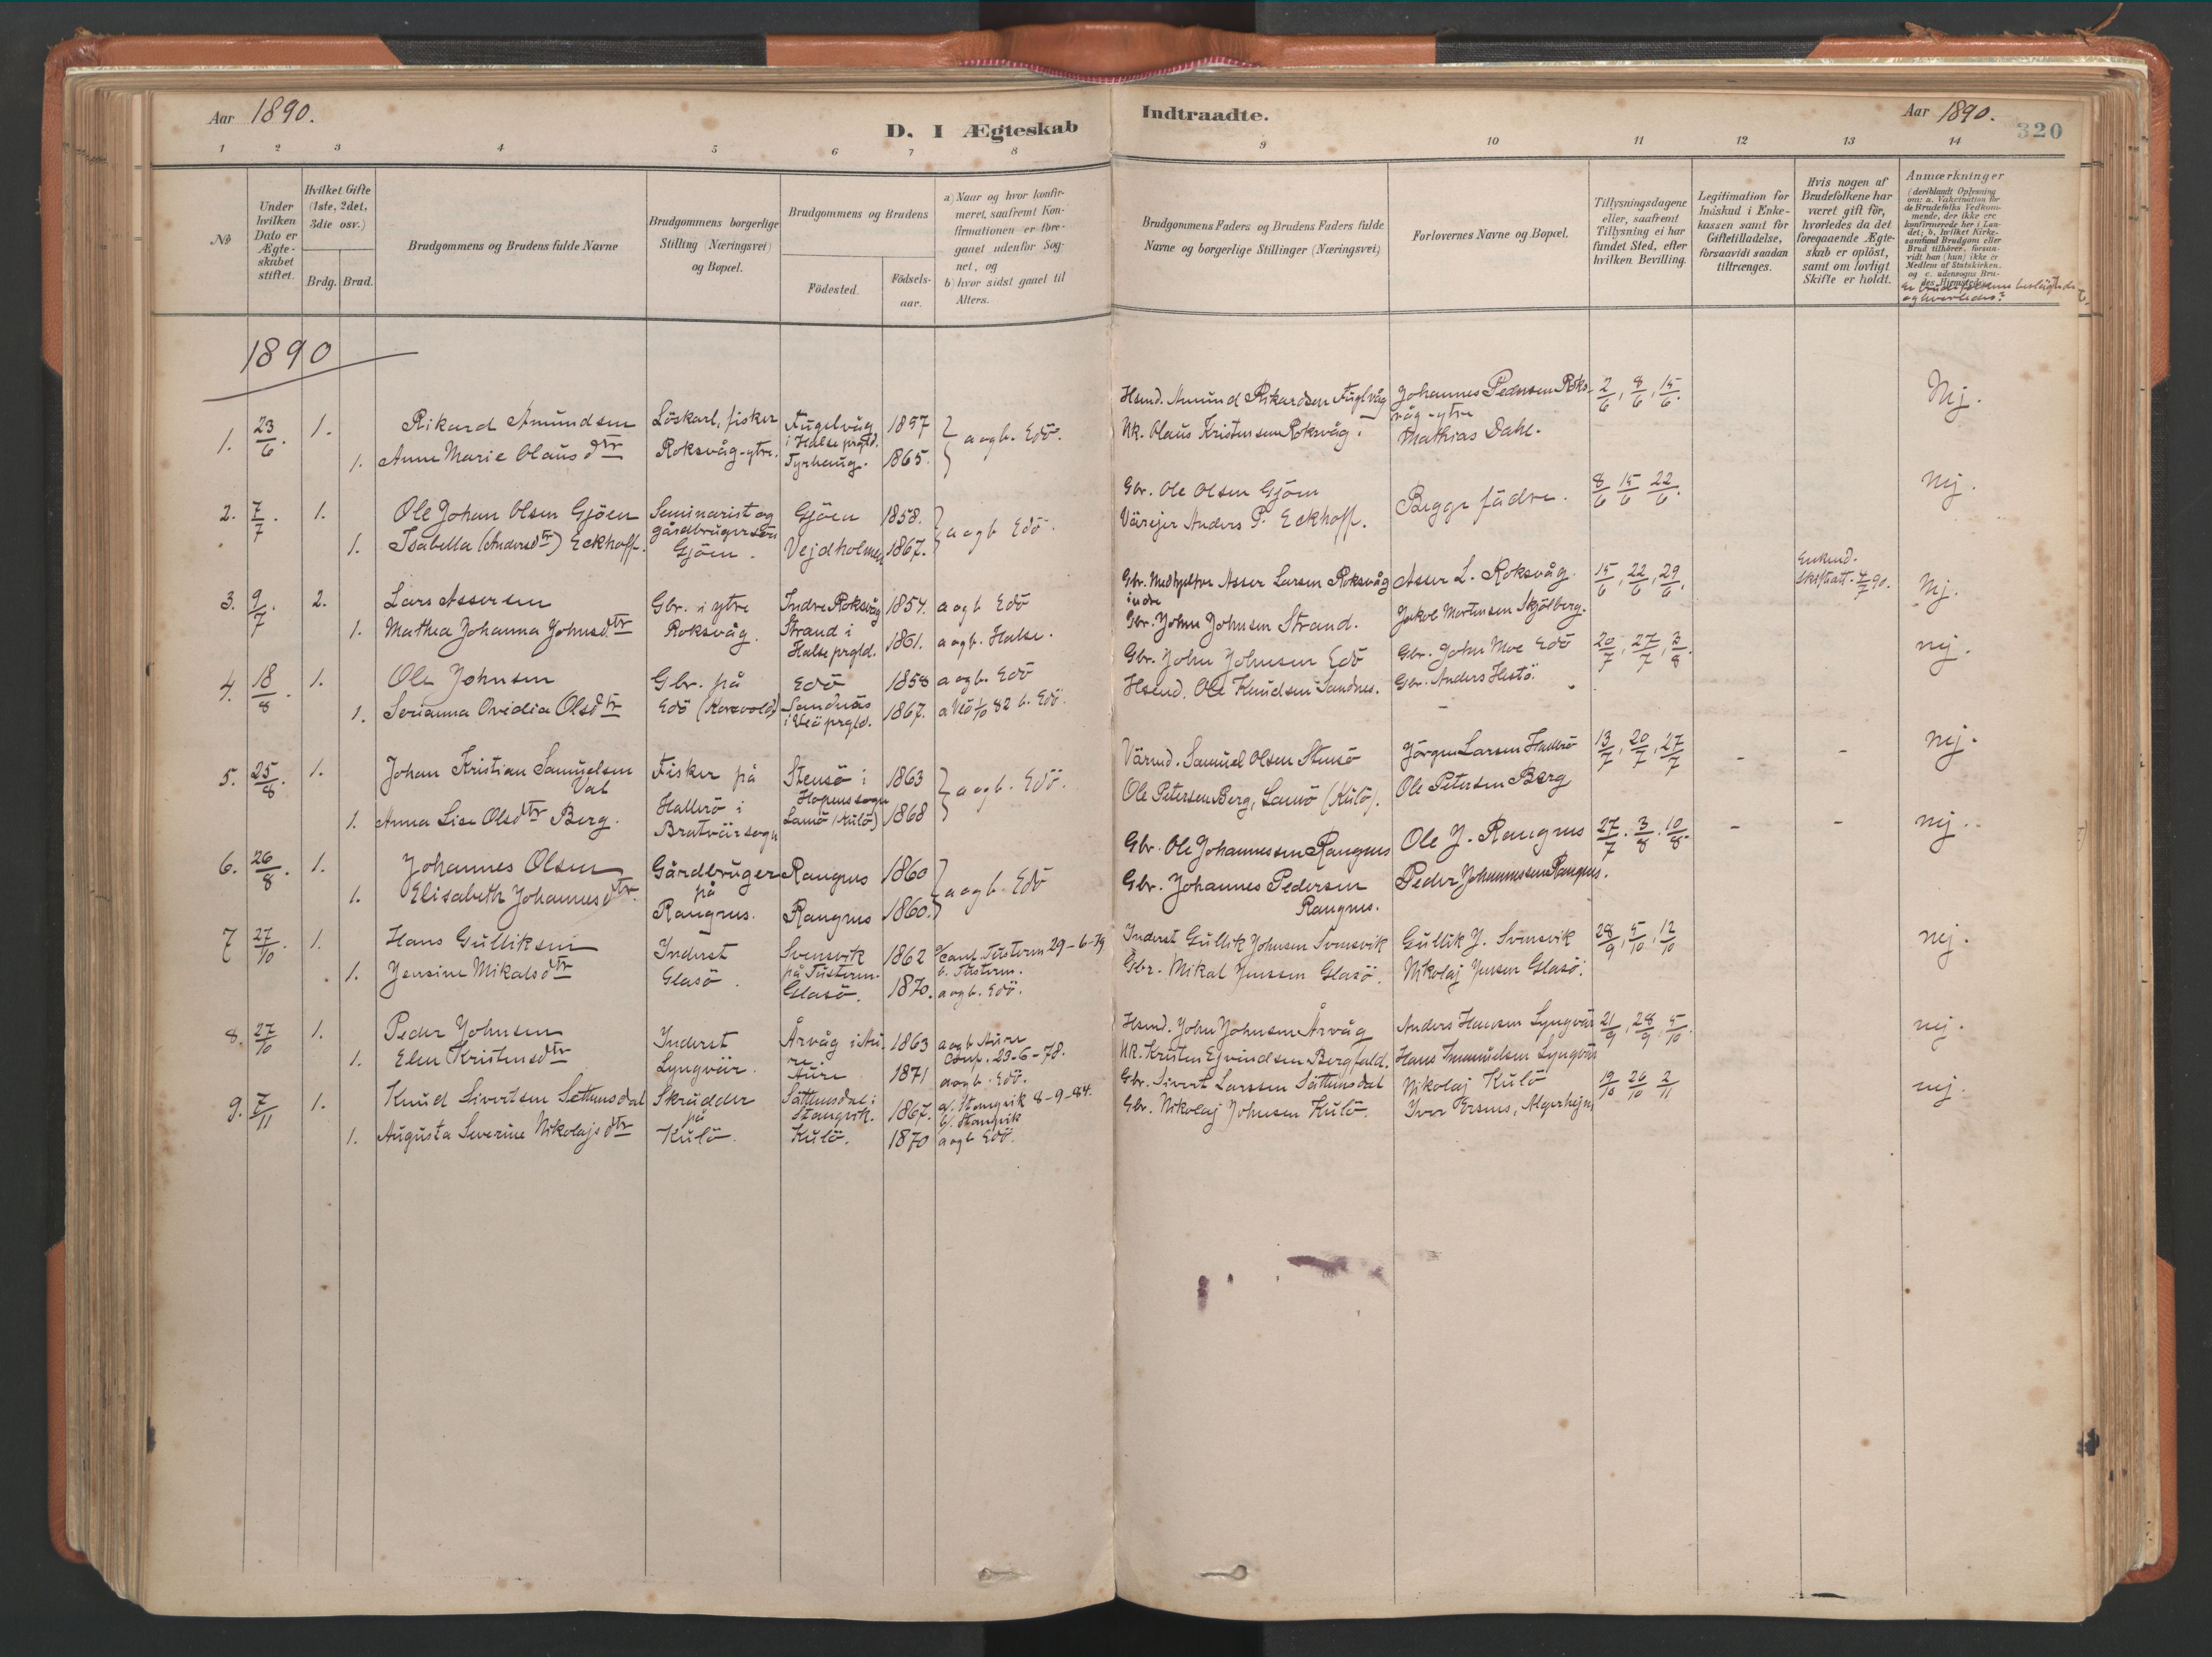 Aar 1890.
D. I Ægteskab
Indtraadte.
Aar 1890.
320
1 2 3 4 5 6 7 8
9 10 11 12 13 14
No
Under hvilken Dato er Ægte-skabet stiftet.
Hvilket Gifte (1ste, 2det, 3die osv.)
Brdg. Brud.
Brudgommens og Brudens fulde Navne
Brudgommens borgerlige Stilling (Næringsvei) og Bopæl.
Brudgommens og Brudens
Födested. Födsels-aar.
a) Naar og hvor konfir-meret, saafremt Kon-firmationen er fore-gaaet udenfor Sog-net, og
b) hvor sidst gaaet til Alters.
Brudgommens Faders og Brudens Faders fulde Navne og borgerlige Stillinger (Næringsvei)
Forlovernes Navne og Bopæl.
Tillysningsdagene eller, saafremt Tillysning ei har fundet Sted, efter hvilken Bevilling.
Legitimation for Indskud i Enke-kassen samt for Giftetilladelse, forsaavidt saadan tiltrænges.
Hvis nogen af Brudefolkene har været gift för, hvorledes da det foregaaende Ægte-skab er oplöst, samt om lovligt Skifte er holdt.
Anmærkninger
(deriblandt Oplysning om: a. Vakcination for de Brudefolks Vedkom-mende, der ikke ere konfirmerede her i Lan-det; b. hvilket Kirke-samfund Brudgom eller Brud tilhörer, forsaa-vidt han (hun) ikke er Medlem af Statskirken, og c. udensogns Bru-des Hjemsted
og hvorledes?
1890
1. 23/6. 1. Rikard Amundsen Löskarl, fisker Fugelvåg i Halse prgld. 1857 } a og b. Edö.
Hsmd. Amund Rikardsen Fuglvåg Johannes Pedersen Roksvåg-ytre 2/6, 8/6, 15/6. Nej.
1. Anne Marie Olausdtr Roksvåg-ytre. Tyrhaug. 1865.
Olaus Kristensen Roksvåg. Mathias Dahl.
2. 7/7. 1. Ole Johan Olsen Gjöen Seminarist og gårdbrugersön Gjöen 1858. } a og b Edö.
Gbr. Ole Olsen Gjöen Begge fädre. 8/6 15/6 22/6. Nej.
1. Isabella (Andersdtr) Eckhoff. Gjöen. Vejdholmen 1867.
Värejer Anders P. Eckhoff.
3. 9/7. 2. Lars Assersen Gbr. i ytre Indre Roksvåg 1854. a og b Edö
Gbr. Medhjelper Asser Larsen Roksvåg indre Asser L. Roksvåg. 15/6, 22/6, 29/6. Enkemd. Skifteatt. 4/7 90. Nej.
1. Mathea Johanna Johnsdtr Roksvåg. Strand i Halse prgld. 1861. a og b. Halse.
Gbr. John Johnsen Strand. Jakob Mortensen Skjölberg.
4. 18/8. 1. Ole Johnsen Gbr. på Edö 1858 a og b. Edö
Gbr. John Johnsen Edö Gbr. John Moe Edö 20/7, 27/7, 3/8. nej.
1. Serianna Ovidia Olsdtr Edö (Korsvold) Sandnäs i Veö prgld. 1867. a Veö 1/10 82 b. Edö.
Hsmd. Ole Knudsen Sandnes. Gbr. Anders Hestö.
5. 25/8. 1. Johan Kristian Samuelsen Val Fisker på Stensö i Hopens sogn 1863 } a og b. Edö.
Värmd. Samuel Olsen Stensö Jörgen Larsen Hallerö 13/7, 20/7, 27/7 - - nej.
1. Anna Lise Olsdtr Berg. Hallerö i Bratvärsogn Lamö (Kulö) 1868
Ole Petersen Berg, Lamö (Kulö). Ole Petersen Berg
6. 26/8. 1. Johannes Olsen Gårdbruger på Rangnes 1860 } a og b. Edö
Gbr. Ole Johannessen Rangnes Ole J. Rangnes 27/7. 3/8. 10/8. - - nej.
1. Elisabeth Johannesdtr. Rangnes. Rangnes 1860.
Gbr. Johannes Pedersen Rangnes. Peder Johannessen Rangnes.
7 27/10. 1. Hans Gulliksen Inderst Svensvik på Tusteren. 1862 Tusteren 29-6-79 b. Tusteren.
Inderst Gullik Johnsen Svensvik Gullik J. Svensvik 28/9, 5/10, 12/10 nej.
1. Jensine Mikalsdtr Glasö. Glasö. 1870. a og b. Edö.
Gbr. Mikal Jenssen Glasö. Nikolaj Jensen Glasö.
8. 27/10 1. Peder Johnsen Inderst Årvåg i Aure 1863 a og b Aure Conf. 23-6-78.
Hsmd. John Johnsen Årvåg Anders Hansen Lyngvär 21/9, 28/9, 5/10. nej.
1. Elen Kristensdtr Lyngvär. Aure 1871 a og b. Edö.
Kristen Ejvindsen Bergfald. Hans Imanuelsen Lyngvär
9. 7/11 1. Knud Sivertsen Settemsdal Skrädder på Sättemsdal i Stangvik. 1867. a/. Stangvik 8-9-84. b/. Stangvik
Gbr. Sivert Larssen Sättemsdal Nikolaj Kulö 19/10 26/10 2/11 nej.
1. Augusta Severine Nikolajsdtr Kulö. Kulö. 1870 a og b Edö.
Gbr. Nikolaj Johnsen Kulö.